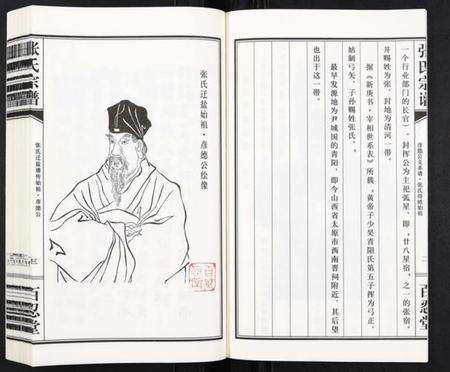 张氏宗谱
二
百忍堂
一个行业部门的长官），封挥公为主祀弧星，即，廿八星宿，之一的张宿，
并赐姓为张，封地为清河一带。
据《新唐书·宰相世系表》所载，黄帝子少昊青阳氏第五子挥为弓正，
始制弓矢，子孙赐姓张氏。
最早发源地为尹城国的青阳，即今山西省太原市西南晋祠附近，其后望
也出于这一带。
张氏迁盐始祖·彦德公绘像
张氏宗谱
张氏迁盐谱传始祖·彦德公
三
百忍堂